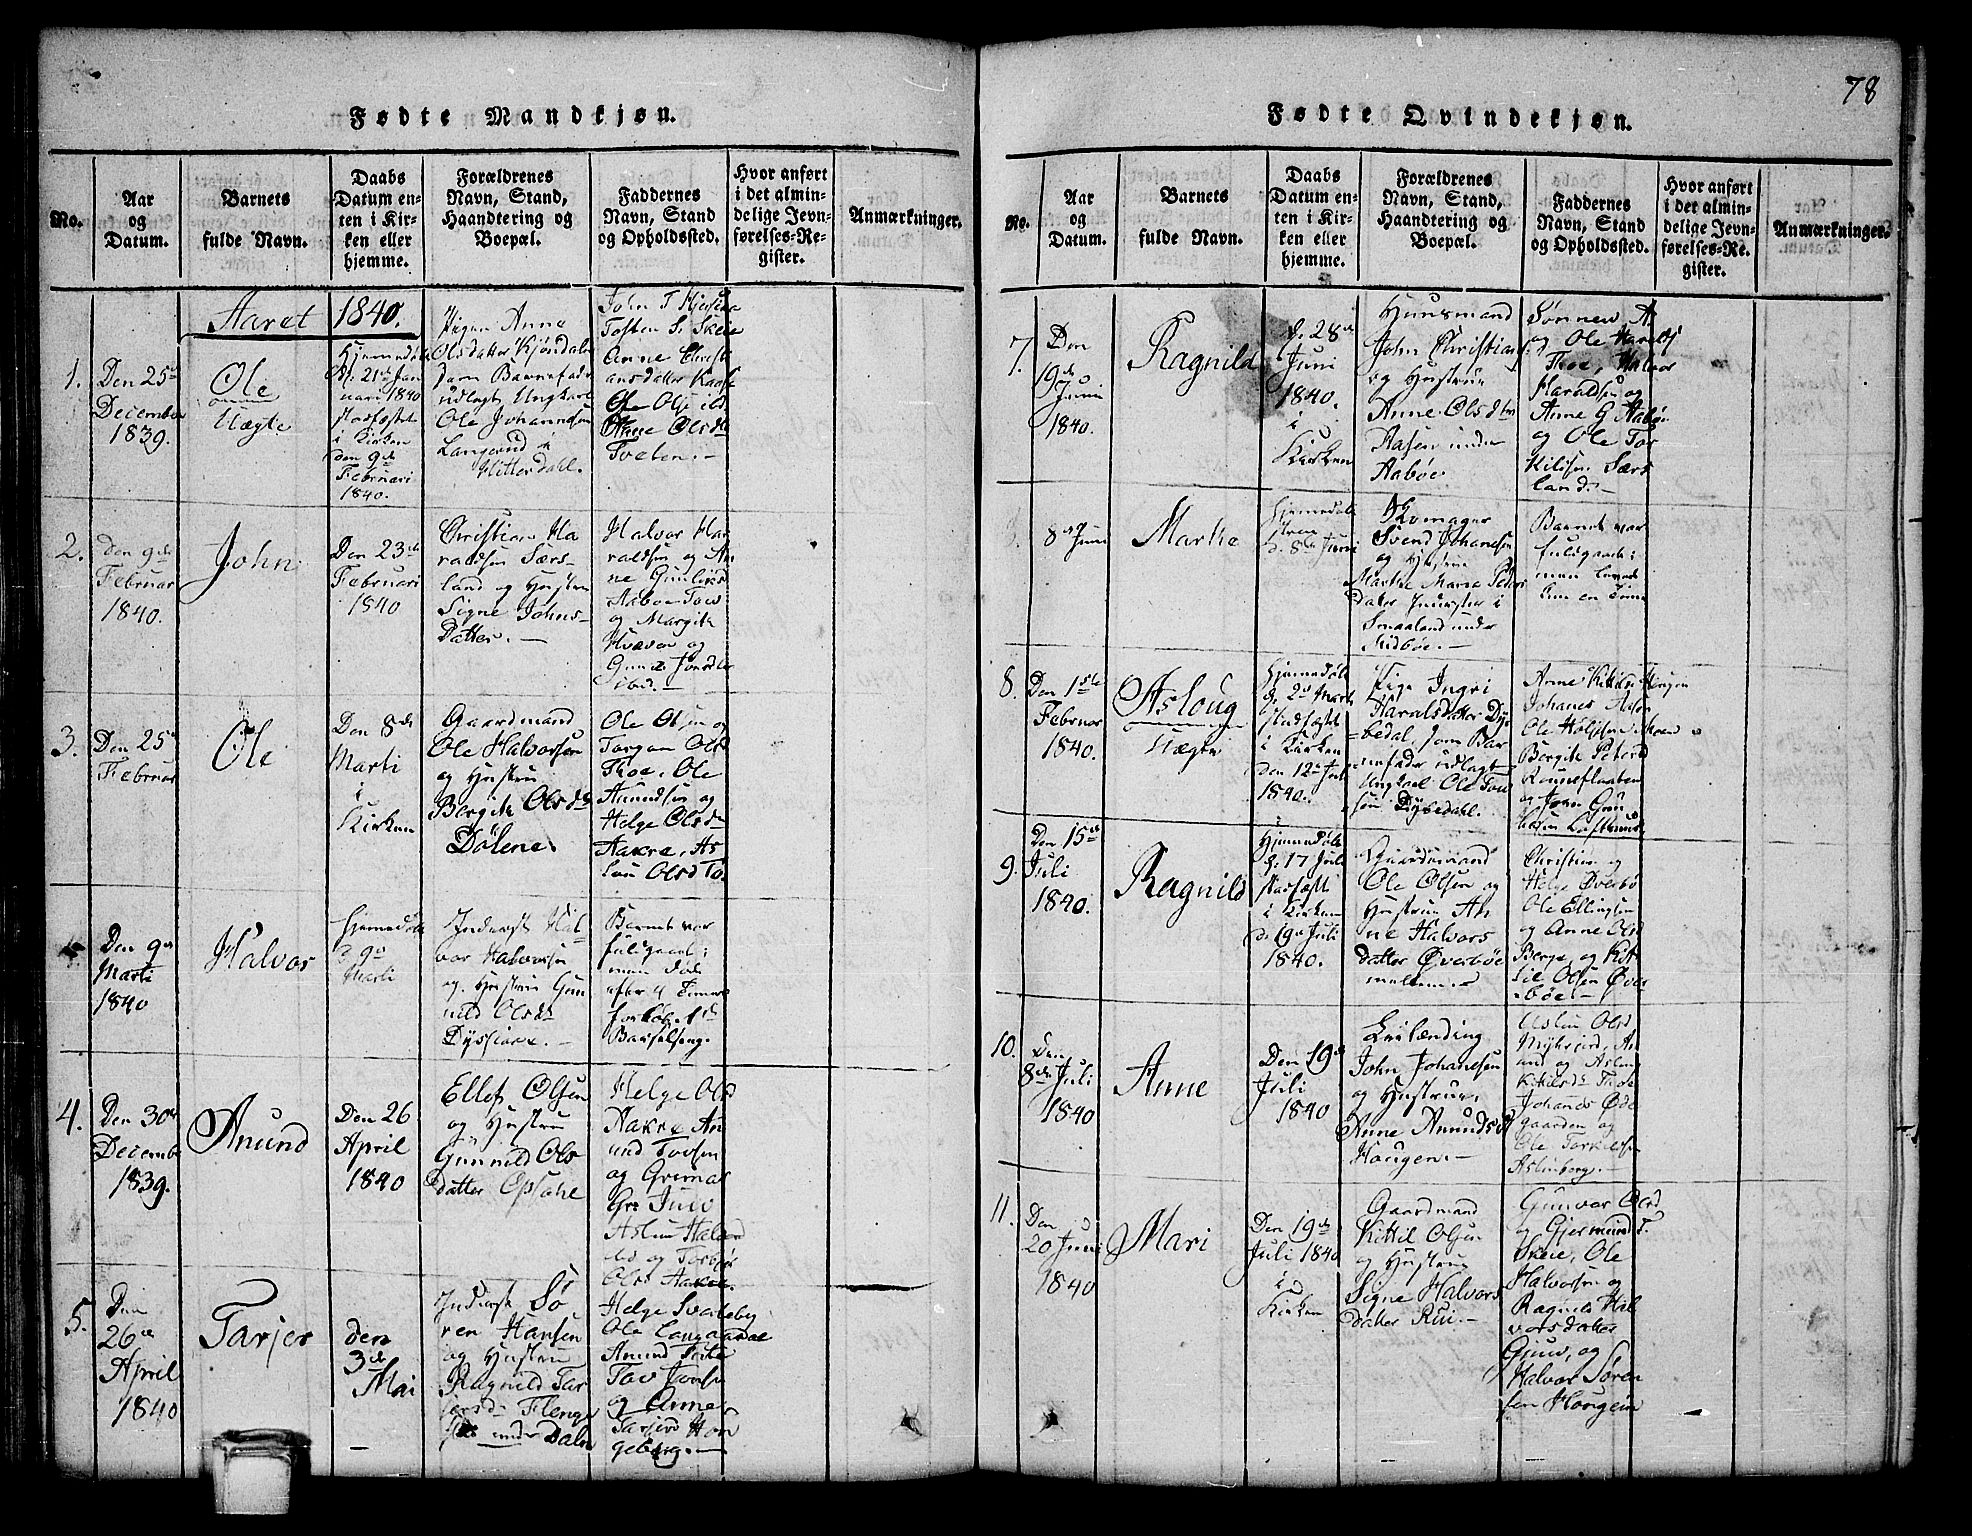 78
Fødte Mandkjøn.
No.
Aar
og
Datum.
Barnets
fulde Navn.
Daabs
Datum en-
ten i Kir-
ken eller
hjemme.
Forældrenes
Navn, Stand,
Haandtering og
Boepæl.
Faddernes
Navn, Stand
og Opholdssted.
Hvor anført
i det almin-
delige Jevn-
førelses-Re-
gister.
Anmærkninger.
Aaret 1840.
1.
Den 25de
December
1839.
Ole
Uægte
Hjemmedøbt
21de Jan
uari 1840
stadfæstet
i Kirken
den 9de
Februari
1840.
Pigen Anne
Olsdatter
som Barnefader
udlagt Ungkarl
Ole Johannesen
Langerud i
Hitterdahl.
John T
Tosten S. Skeie
Anne Christi
ansdatter
Ole
Olsdr
Tveten.
2.
den 9de
Februar
1840.
John
Den 23de
Februari
1840
Christian Ha
raldsen Særs-
land og Hustru
Signe Johns-
Datter.
Halvor Har
raldsen og An
ne Gunlics
Aaboe Tov
og Margith
Kvæven og
ibid.
3.
Den 25de
Februar
Ole
Den 8de
Marti
i
Kirken
Gaardmand
Ole Halvorsen
og Hustru
Bergith Olsdr
Dølene.
Ole Olsen og
Torgon Olsd
Thoe, Ole
Anundsen og
Helge Olsdr
Aakre, As
Olsd To.
Den 9de
Marti
1840
Halvor
Hjemmedøbt
9de
Marti
Inderst Hal-
vor Halvorsen
og Hustru Gun
nild Olsdr
Barnet var
fuldgaaet;
men døde
efter 4 Timers
Barselseng.
4.
Den 30de
December
1839.
Anund
Den 26
April
1840
Ellef Olsen
og Hustru
Gunnild Ols
datter Opsahe
Helge Olsd
Aakre An
und Tovsen
og Gremar
Gr. Juv
Aslun Halvord
ibd og Torbjør
Olsd Aakre.
5.
Den
26de
April
1840
Tarjer
den
3de
Mai
Inderst Sø
ren Hansen
og Hustru
Ragnild Tar
jersdr
under Dalen
Helge Svarteby
Ole Langaarden
Anund
Tov Jonsen
og Anne
Tarjersd Hou
geberg.
Fødte Qvindekjøn.
No.
Aar
og
Datum.
Barnets
fulde Navn.
Daabs
Datum en-
ten i Kir-
ken eller
hjemme.
Forældrenes
Navn, Stand,
Haandtering og
Boepæl.
Faddernes
Navn, Stand
og Opholdssted.
Hvor anført
i det almin-
delige Jevn-
førelses-Re-
gister.
Anmærkninger.
7.
Den
19de
Juni
1840.
Ragnild
d. 28de
Juni
1840.
i
Kirken
Huusmand
John Christians
og Hustrue
Anne Olsdtr
Aasen under
Aabøe
Sønnew A
og Ole Haralds
Thoe, Halvor
Haraldsen og
Anne G Aabø
og Ole Tor
Kilsen Særs
land.
8de Juni
Marthe
Hjemmedøbt
d. 8de Juni
Skomager
Svend Johanesen
og Hustrue
Marthe Maria Peders
datter Inderster i
Smaaland under
Midbøe.
Barnet var
fuldgaaet;
men levede
kun en Time
8.
Den 15de
Februar
1840.
Asloug
Uægte
Hjemmedøbt
d. 2de Marti
stadfæstet
i Kirken
den 12te Juli
1840.
Pige Ingri
Haralsdatter Dys
bedal, som Bar
nefader udlagt
Ungkarl Ole Tov
sen Dysbedahl.
Anne Kittilsd Haugen
Johanes Aasen
Ole Holjesen Moen
Bergith Petersd
Rønneflaaten
og John Grun
9.
Den 15de
Juli
1840.
Ragnild
Hjemmedøbt
d. 17 Juli
stadfæstet
i Kirken
d. 19de Juli
1840.
Gaardmand
Ole Olsen og
Hustrue An
ne Halvors
datter Øverbøe
mellem.
Christen og
Helge Øverbø
Ole Ellingsen
og Anne Olsd
Berge, og Kit
til Olsen Øver
bøe.
10.
Den
8de Juli
1840
Anne
Den 19de
Juli
1840
Qvilænding
John Johanesen
og Hustrue
Anne Anundsd
Haugen.
Aslau Olsd
An
und og Aslaug
Kittilsdr Thoe
Johanes Øde
gaarden og
Ole Torkildsen
Aslenberg.
11.
Den
20 Juni
1840
Mari
Den 19de
Juli 1840
i
Kirken
Gaardmand
Kittil Olsen
og Hustrue
Signe Halvors
datter Rui.
Gunvor Olsd
og Gjermund T.
Skeie, Ole
Halvorsen og
Ragnild Hal
vorsdatter
Gjuv, og
Halvor Søren
sen Hougein